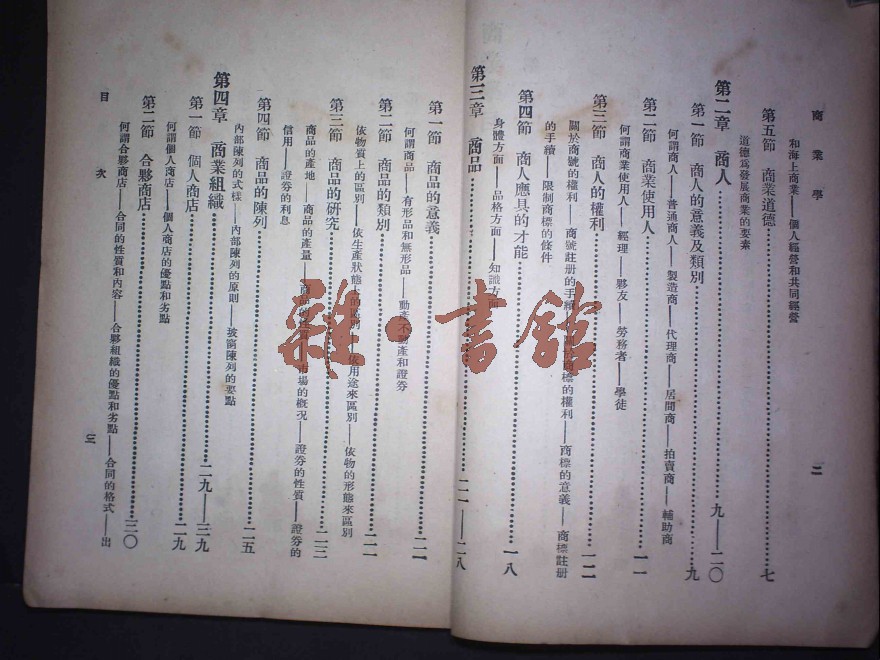 商業學
二
和海上商業——個人經營和共同經營
第五節 商業道德……七
道德爲發展商業的要素
第二章 商人……九——二〇
第一節 商人的意義及類別……九
何謂商人——普通商人——製造商——代理商——居間商——拍賣商——輔助商
第二節 商業使用人……一一
何謂商業使用人——經理——夥友——勞務者——學徒
第三節 商人的權利……一二
關於商號的權利——商號註册的手續——關於商標的權利——商標的意義——商標註册
的手續——限制商標的條件
第四節 商人應具的才能……一八
身體方面——品格方面——知識方面
第三章 商品……二一——二八
第一節 商品的意義……二一
何謂商品——有形品和無形品——動產不動產和證券
第二節 商品的類別……二二
依物質上的區別——依生產狀態上的區別——依用途來區別——依物的形態來區別
第三節 商品的研究……二三
商品的產地——商品的產量——商品的性質——市場的概况——證券的性質——證券的
信用——證券的利息
第四節 商品的陳列……二五
內部陳列的式樣——內部陳列的原則——玻窗陳列的要點
第四章 商業組織……二九——三九
第一節 個人商店……二九
何謂個人商店——個人商店的優點和劣點
第二節 合夥商店……三〇
何謂合夥商店——合同的性質和內容——合夥組織的優點和劣點——合同的格式——出
目次
三
雜·書館